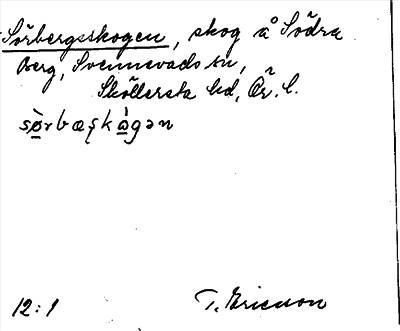 Sörbergsskogen, skog å Södra
Berg, Svennevads sn,
Sköllersta hd, Ör. l.
sø̀rbæʂkågən
12:1 T. Ericsson